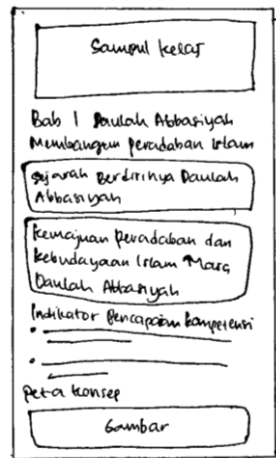 Sampul kelas
Bab 1 Daulah Abbasiyah
Membangun peradaban Islam
Sejarah Berdirinya Daulah
Abbasiyah
Kemajuan Peradaban dan
Kebudayaan Islam Masa
Daulah Abbasiyah
Indikator Pencapaian kompetensi
Peta konsep
Gambar